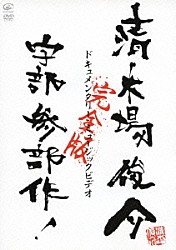 清木場俊介
ドキュメンタリーミュージックビデオ
完全版
宇部参部作!